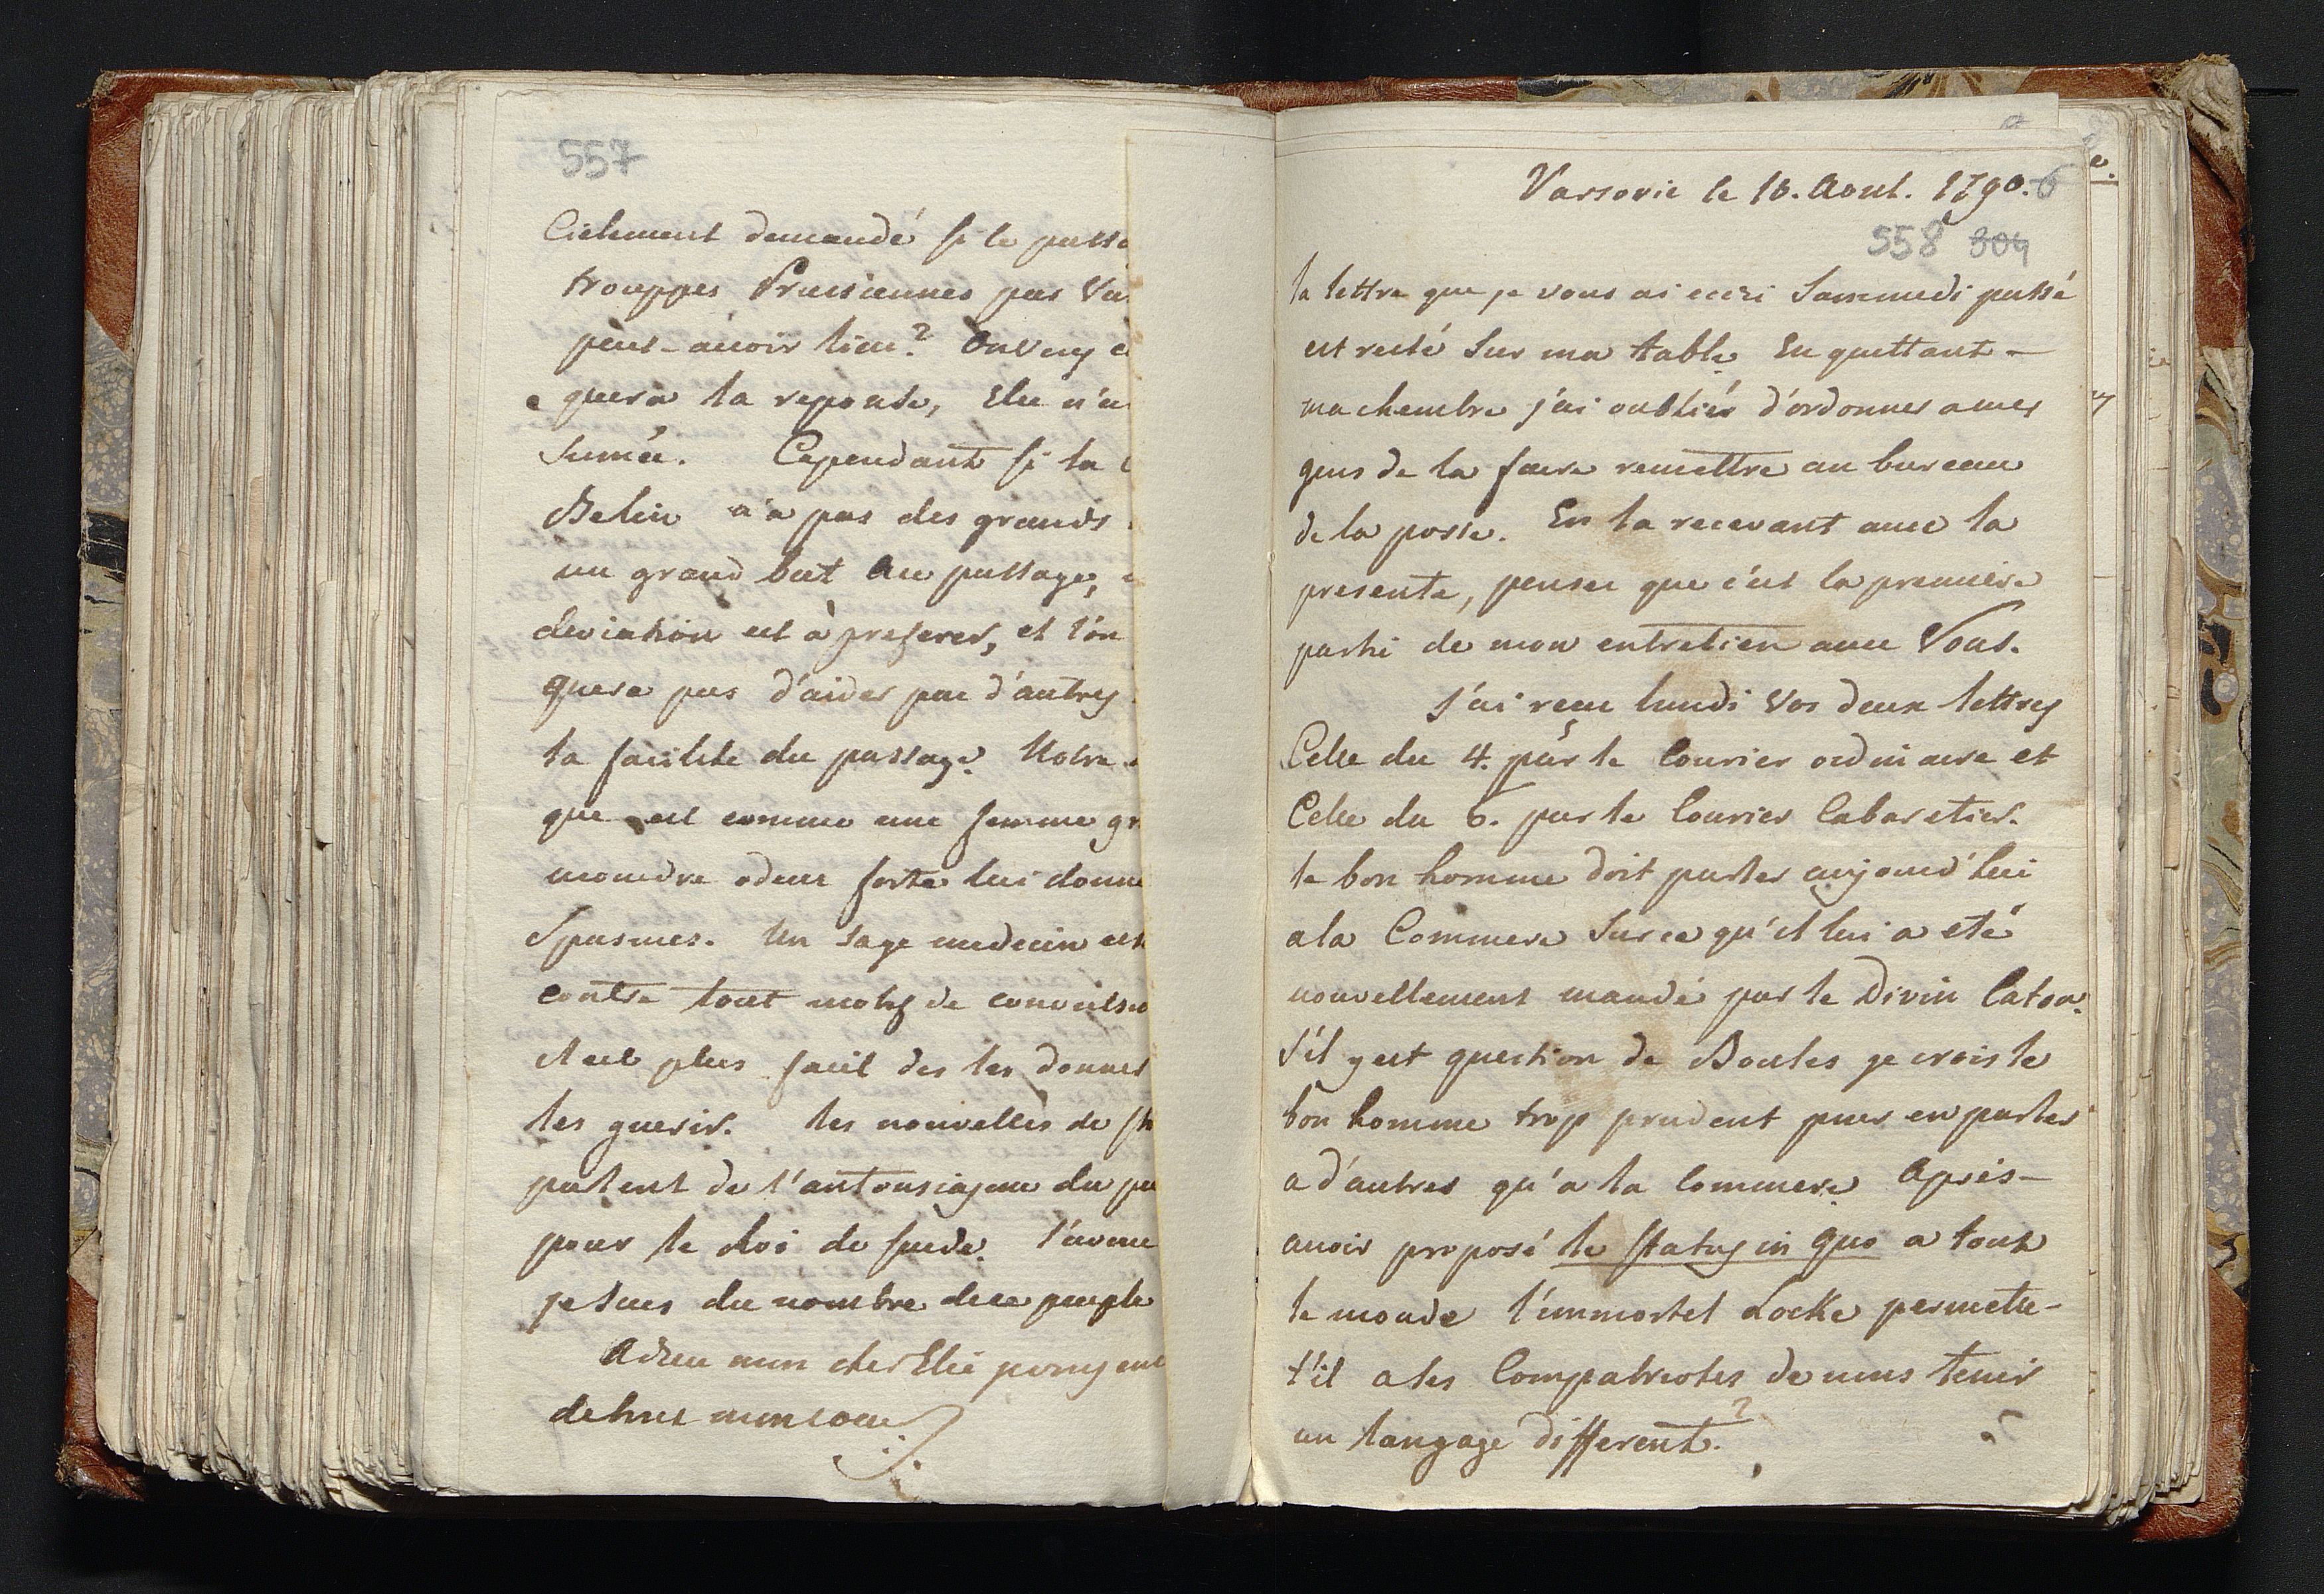 557
Cielement demandé si le passa
trouppes Prussiennes par Va
peus-avoir lieu? On Vuy
quera la reponse, Elle n'a
sumée. Cependant si la
Belin n'a pas des grands
un grand but au passage,
deviation est à preferer, et l'on
quera pas d'aider par d'autres
la facilité du passage. Notre
que est comme une femme gr
moindre odeur forte lui donne
Spasmes. Un sage medecin est
contre tout motif de convulsio
il est plus facil des les donner
les guerir. les nouvelles de St
parlent de l'antousiasme du pe
pour le Roi de suede. l'avou
je suis du nombre de ce peuple
Adieu mon cher Elie
de tout mon coeur
Varsovie le 16. Aout. 1790. 6
558 304
la lettre que je vous ai ecri Sammedi passé
est resté sur ma table. En quittant -
ma chembre j'ai oubliér d'ordonner a mes
gens de la faire remettre au bureau
de la poste. En la recevant avec la
presente, penser que c'est la premiere
parti de mon entretien avec Vous.
J'ai reçu lundi vos deux lettres
Celle du 4. par le Courier ordinaire et
Celle du 6. par le Courier Cabaretier.
le bon homme doit parler aujourd'hui
a la Commere sur ce qu'il lui a eté
nouvellement mandé par le Divin Caton.
s'il y est question de Boules je crois le
bon homme trop prudent pour en parler
a d'autres qu'a la Commere. Après -
avoir proposé le status in quo a tout
le monde l'immortel Locke permette-
t'il a les Compatriotes de nous tenir
un langage different?